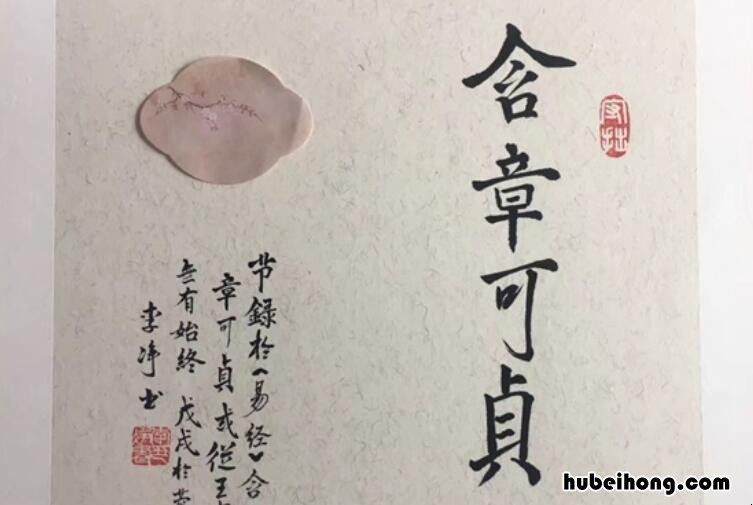 含章可貞
节録於《易经》含
章可貞或從王
無有始终 戊戌於
李净书
守拙
hubeihong.com